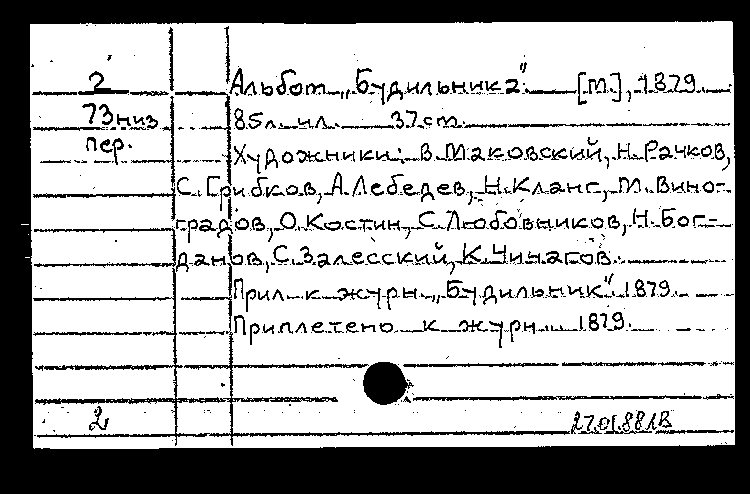 2
73 низ
пер.
Альбом „Будильника". [М.], 1879.
85л. ил. 37cm.
Художники: В. Маковский, Н. Рачков,
С. Грибков, А. Лебедев, Н. Кланг, М. Вино-
градов, О. Костин, С. Любовников, Н. Бог-
данов, С. Залесский, К. Чичагов.
Прил. к журн. „Будильник". 1879.
Приплетено к журн... 1879.
2
27.01.88 АВ